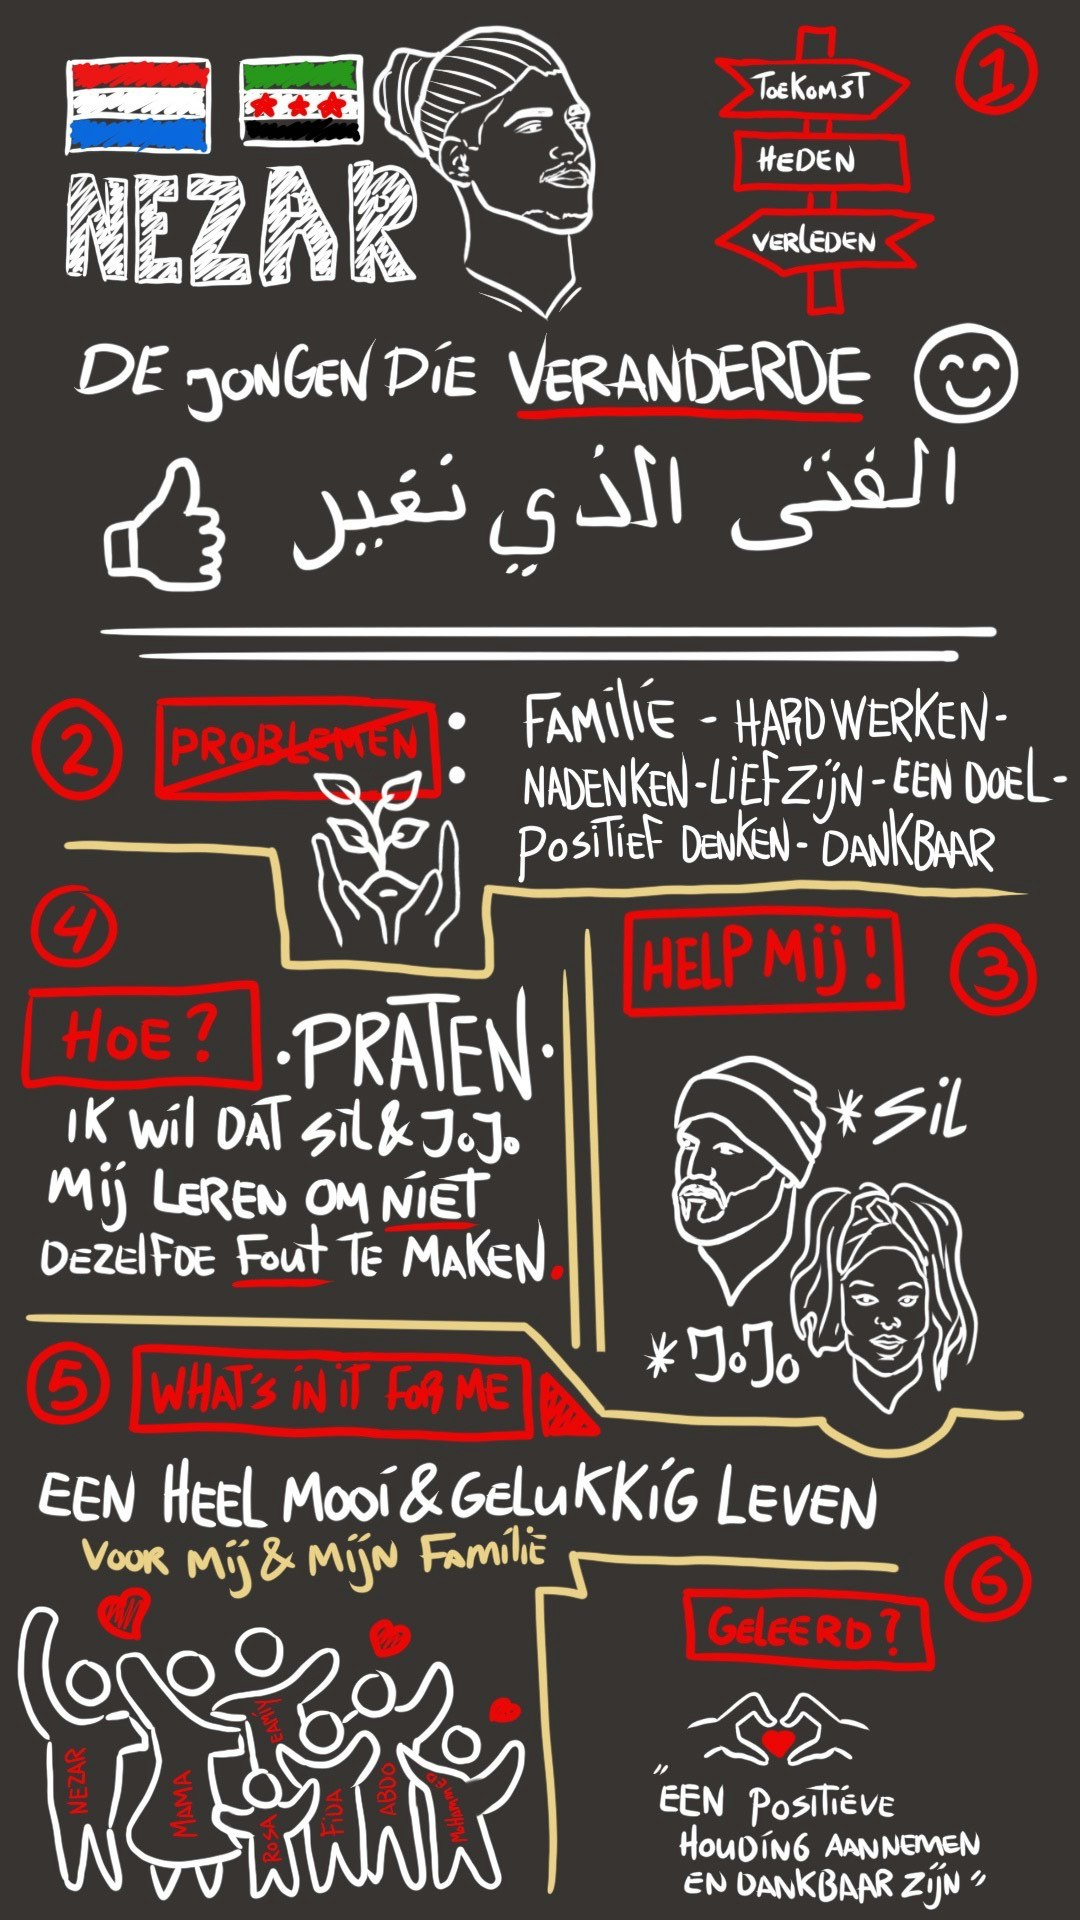 NEZAR
TOEKOMST
HEDEN
VERLEDEN
1
DE JONGEN DIE VERANDERDE
الفتى الذي تغير
2
PROBLEMEN :
FAMILIE - HARD WERKEN -
NADENKEN - LIEF ZIJN - EEN DOEL -
POSITIEF DENKEN - DANKBAAR
3
HELP MIJ!
* SIL
* JOJO
4
HOE?
• PRATEN •
IK WIL DAT SIL & JOJO
MIJ LEREN OM NIET
DEZELFDE FOUT TE MAKEN.
5
WHAT'S IN IT FOR ME
EEN HEEL MOOI & GELUKKIG LEVEN
VOOR MIJ & MIJN FAMILIE
NEZAR
MAMA
ROSA
FIDA
ABDO
MOHAMMED
6
GELEERD?
"EEN POSITIEVE
HOUDING AANNEMEN
EN DANKBAAR ZIJN"